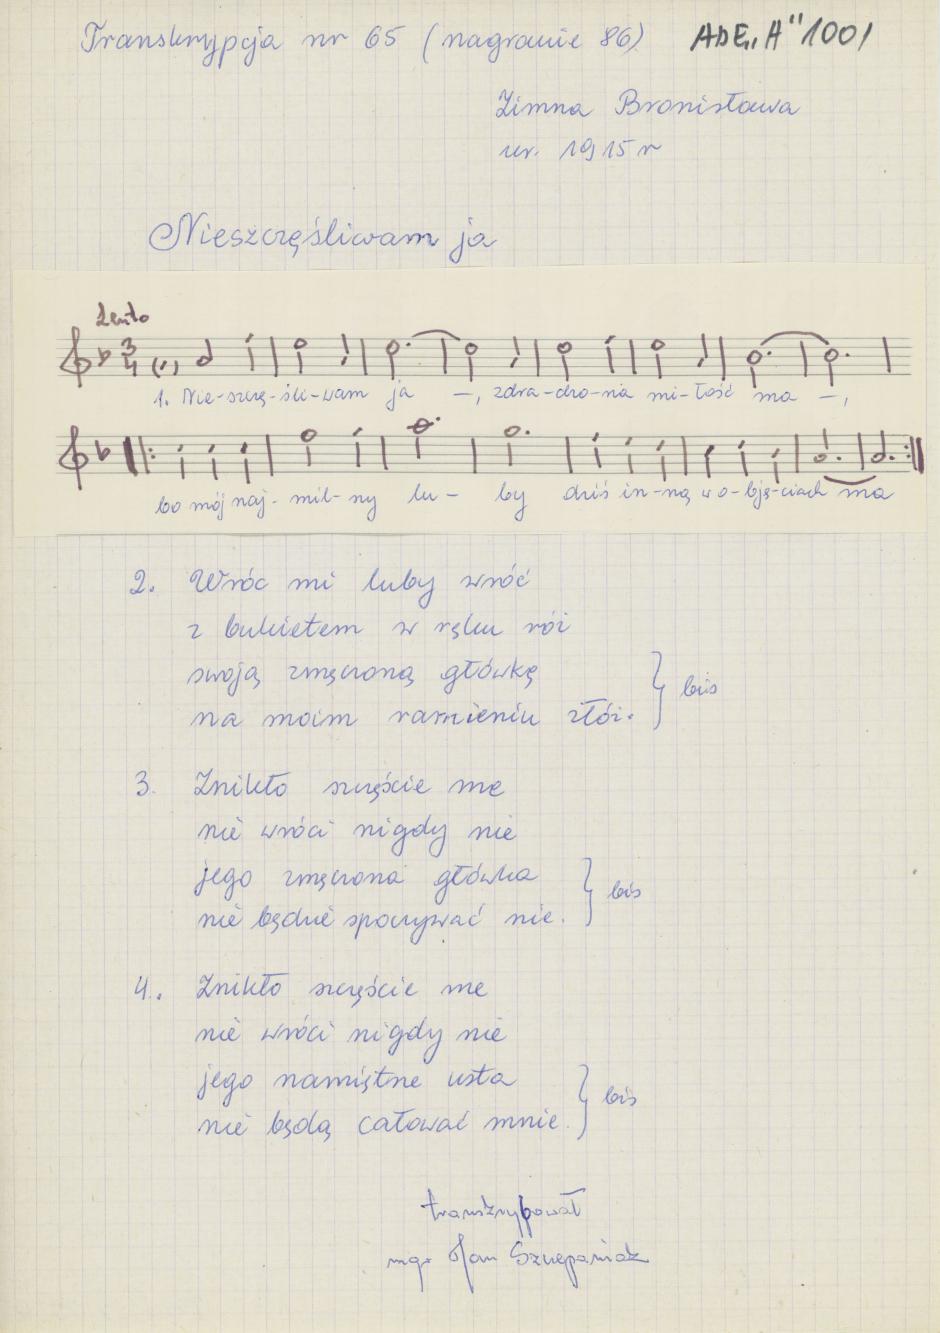 Transkrypcja nr 65 (nagranie 86) ADE „A" 1001
Zimna Bronisława
ur. 1915 r
Nieszczęśliwam ja
Lento
3
4
1. Nie-szczę-śli-wam ja –, zdra-dzo-na mi-łość ma –,
bo mój naj-mil-ny lu- by dziś in-ną w o-bję-ciach ma
2. Wróc mi luby wróć
z bukietem w ręku róż
swoją zmęczoną główkę
na moim ramieniu złóż. } bis
3. Znikło szczęście me
nie wróci nigdy nie
jego zmęczona główka } bis
nie będzie spoczywać nie.
4. Znikło szczęście me
nie wróci nigdy nie
jego namiętne usta } bis
nie będą całować mnie.
transkrybował
mgr Jan Szczepaniak